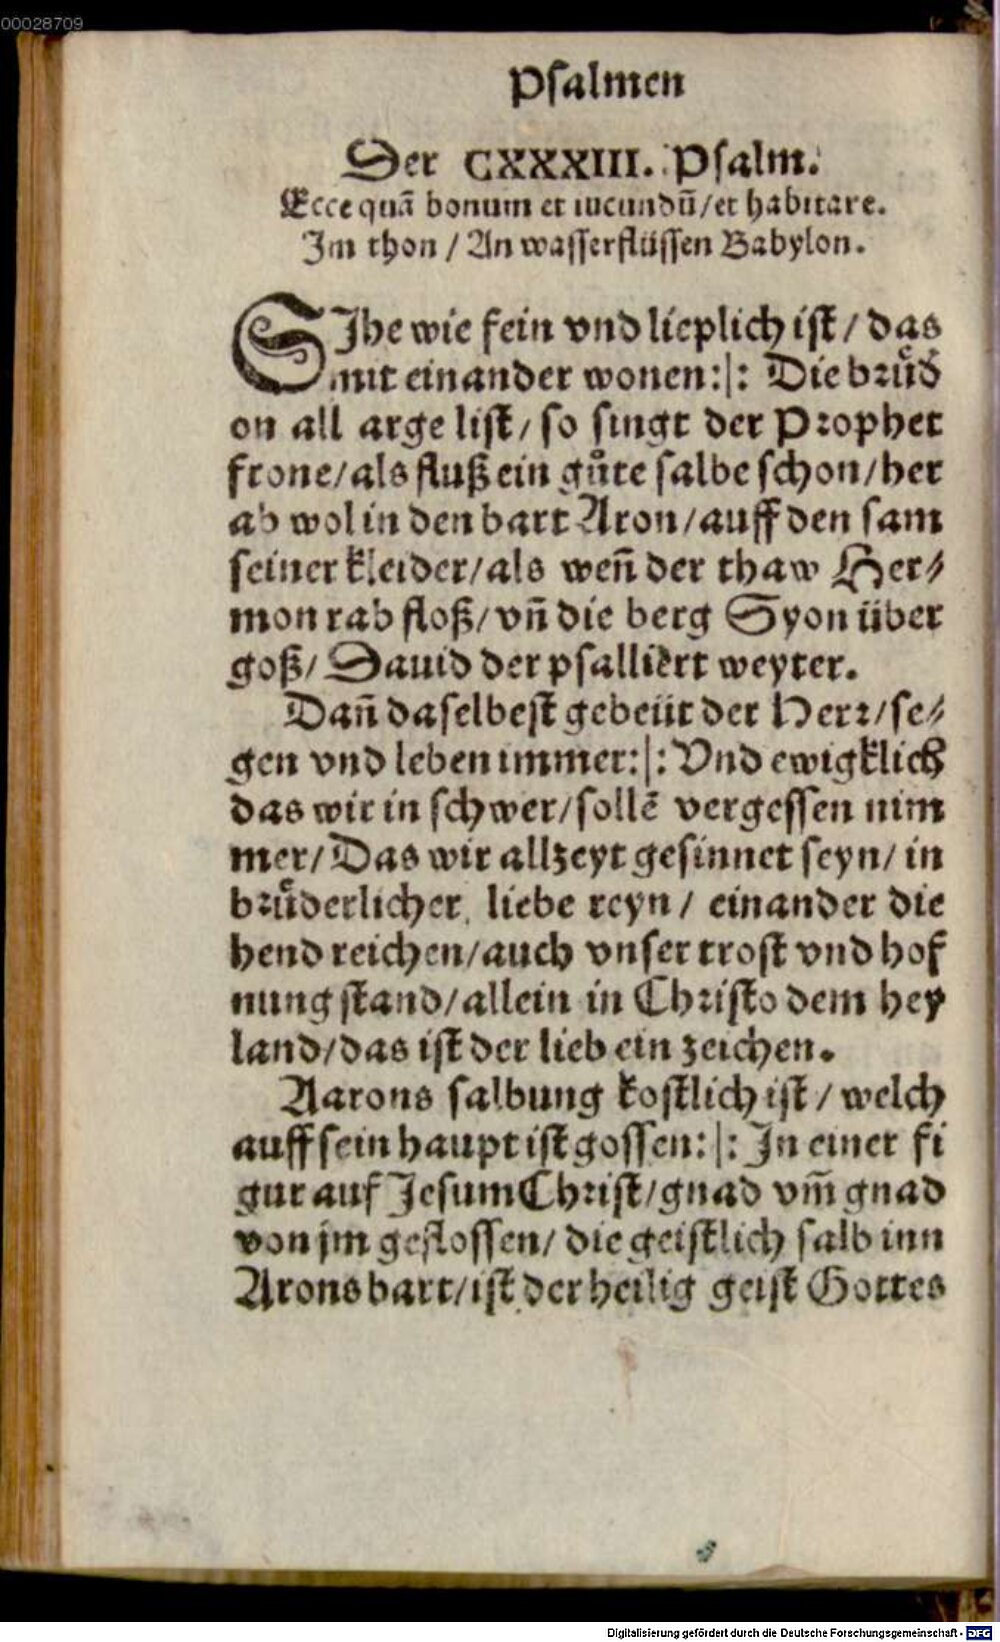 00028709
Psalmen
Der CXXXIII. Psalm.
Ecce quā bonum et iucundū/et habitare.
Im thon / An wasserflüssen Babylon.
SIhe wie fein vnd lieplich ist / das
mit einander wonen:|: Die bruͤd
on all arge list/ so singt der Prophet
frone/als fluß ein guͦte salbe schon/her
ab wol in den bart Aron/auff den sam
seiner kleider/als wen̄ der thaw Her⸗
mon rab floß/vn̄ die berg Syon über
goß/ Dauid der psalliert weyter.
Dan̄ daselbest gebeüt der Herr/se⸗
gen vnd leben immer:|: Vnd ewigklich
das wir in schwer/sollē vergessen nim
mer/Das wir allzeyt gesinnet seyn/ in
bruͤderlicher liebe reyn / einander die
hend reichen/auch vnser trost vnd hof
nung stand/allein in Christo dem hey
land/das ist der lieb ein zeichen.
Aarons salbung kostlich ist / welch
auff sein haupt ist gossen:|: In einer fi
gur auf Jesum Christ/gnad vm̄ gnad
von jm geflossen/ die geistlich salb inn
Arons bart/ist der heilig geist Gottes
Digitalisierung gefördert durch die Deutsche Forschungsgemeinschaft - DFG